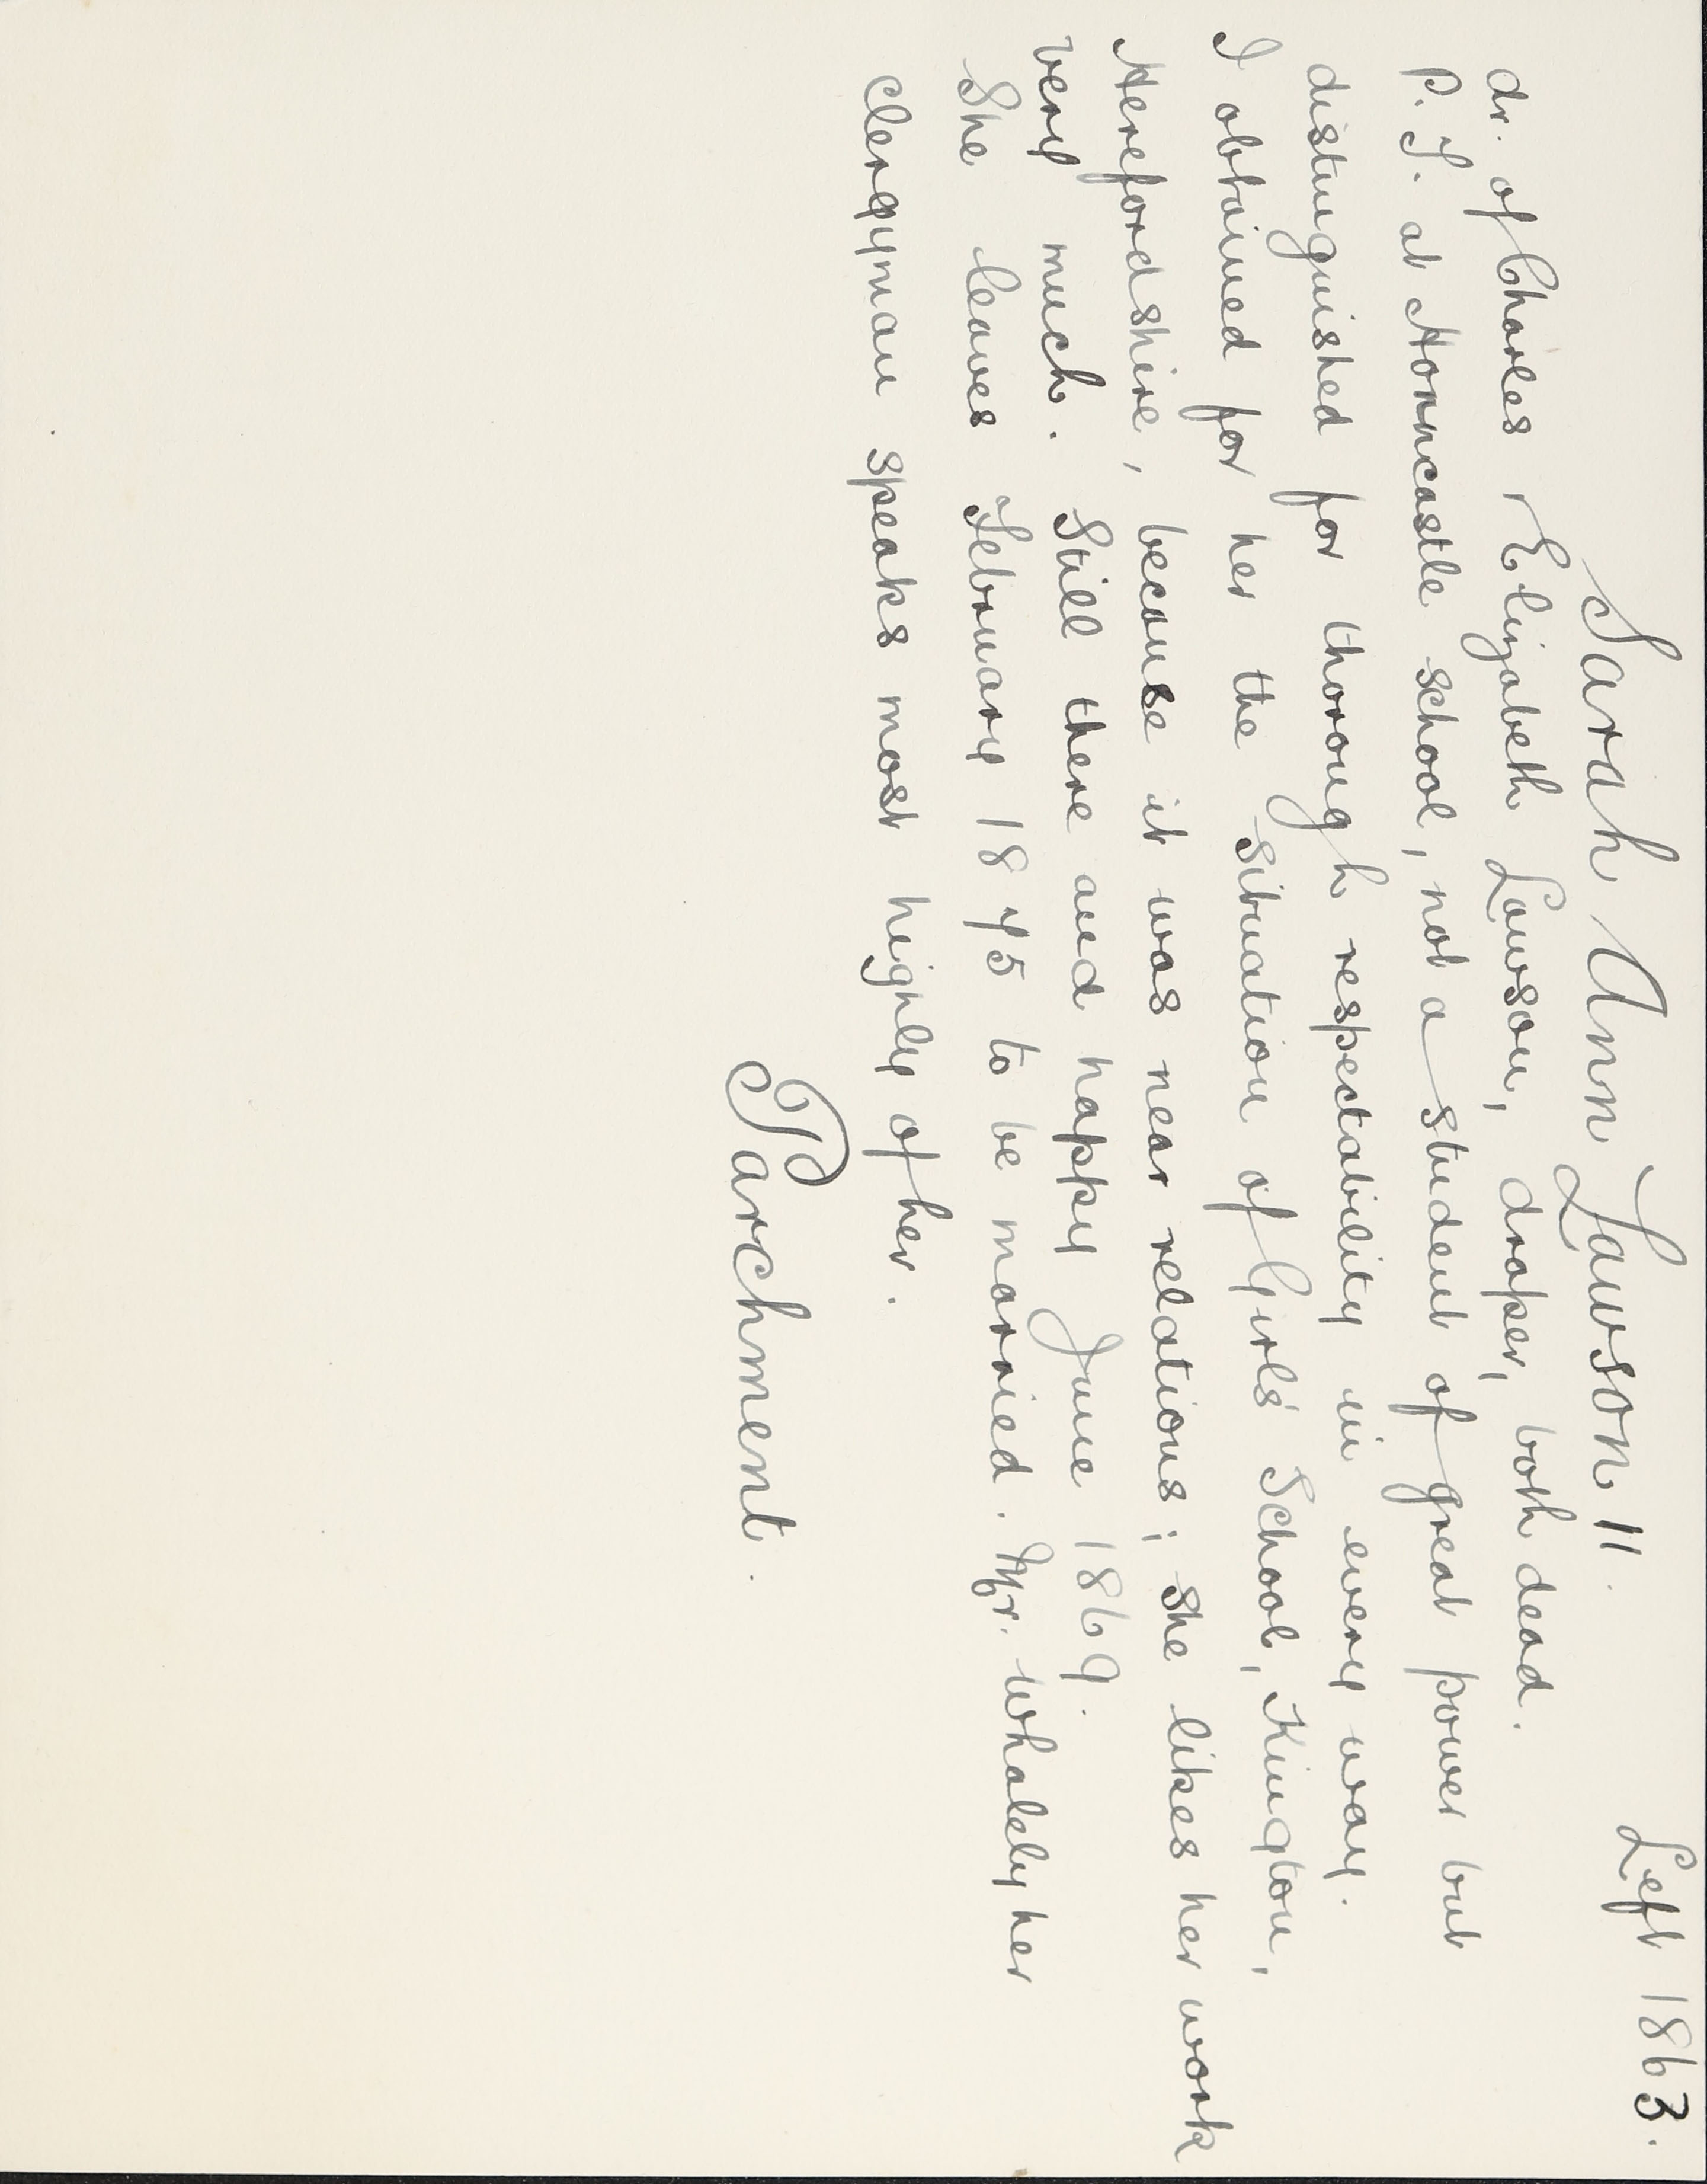 Sarah Ann Lawson 11. Left 1863.
dr. of Charles & Elizabeth Lawson, draper, both dead.
P. T. at Horncastle school, not a student of great power but
distinguished for thorough respectability in every way.
I obtained for her the situation of Girls' School, Kington,
Herefordshire, because it was near relations; she likes her work
very much. Still there and happy June 1869.
She leaves February 1875 to be married. Mr. Whalely her
clergyman speaks most highly of her.
Parchment.